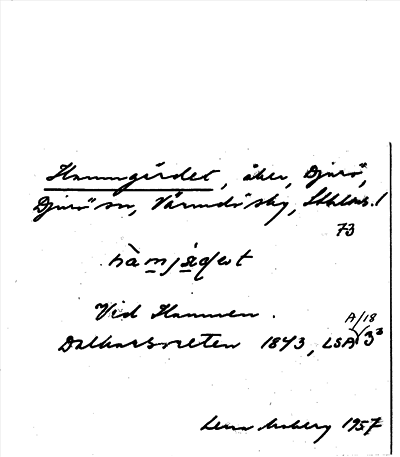 Hamngärdet, åker, Djurö,
Djurö sn, Värmdö skg, Sthlms. l
73
hàmjǟḍet
Vid Hamnen.
Dalkarsvreten 1873, LSA A/18 3³
Lena Moberg 1957